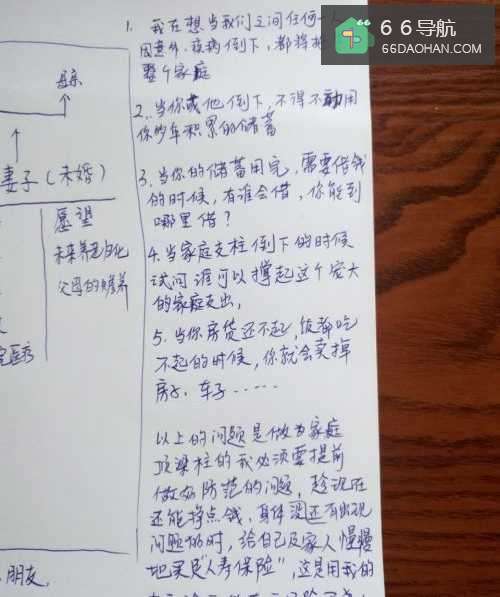 66导航
66DAOHAN.COM
妻子（未婚）
愿望
父母的赡养
朋友.
1. 我在想当我们之间任何一
因意外.疾病倒下,都将
整个家庭
2. 当你或他倒下,不得不动用
你多年积累的储蓄
3. 当你的储蓄用完,需要借钱
的时候,有谁会借,你能到
哪里借?
4. 当家庭支柱倒下的时候
试问谁可以撑起这个庞大
的家庭支出,
5. 当你房贷还不起,饭都吃
不起的时候,你就会卖掉
房子、车子……
以上的问题是做为家庭
顶梁柱的我必须要提前
做好防范的问题,趁现在
还能挣点钱,身体还没有出现
问题时,给自己及家人慢慢
地买足"人寿保险",这是用我的